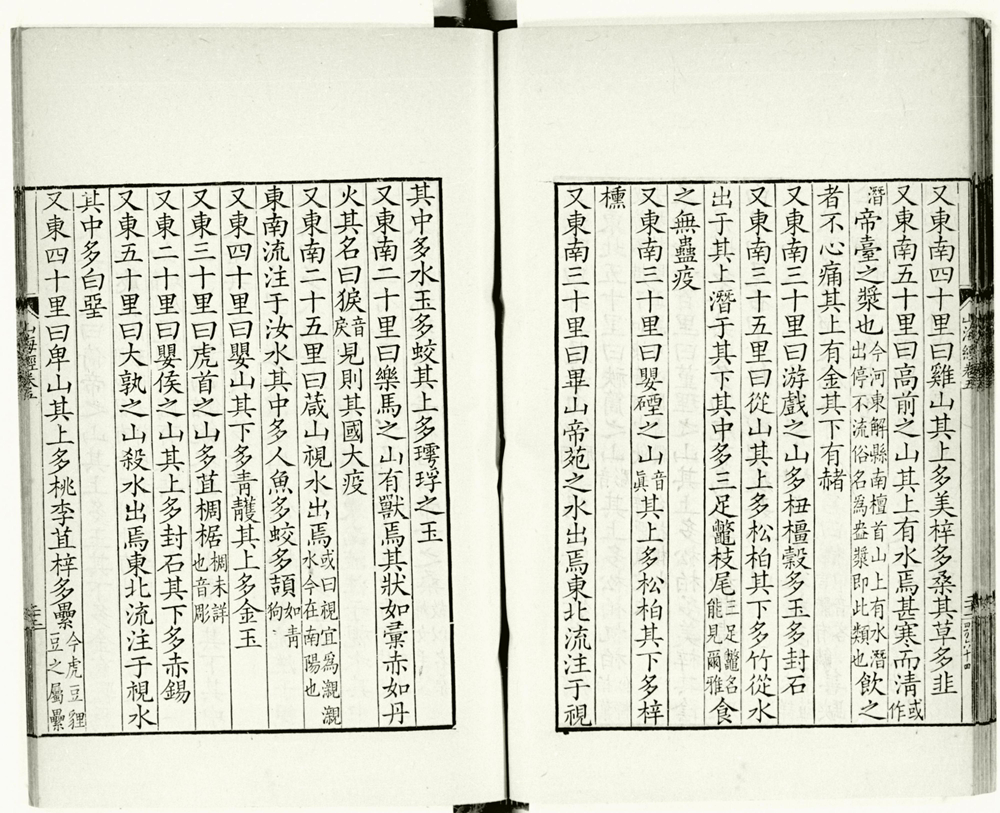 又東南四十里曰雞山其上多美梓多桑其草多韭
又東南五十里曰高前之山其上有水焉甚寒而淸或作
潛帝臺之漿也今河東解縣南檀首山上有水潛出停不流俗名爲盎漿卽此類也飮之
者不心痛其上有金其下有赭
又東南三十里曰游戲之山多杻橿穀多玉多封石
又東南三十五里曰從山其上多松柏其下多竹從水
出于其上潛于其下其中多三足鼈枝尾三足鼈名能見爾雅食
之無蠱疫
又東南三十里曰嬰䃌之山音眞其上多松柏其下多梓
櫄
又東南三十里曰畢山帝苑之水出焉東北流注于視
山海經卷五
其中多水玉多蛟其上多㻬琈之玉
又東南二十里曰樂馬之山有獸焉其狀如彙赤如丹
火其名曰㺉音戾見則其國大疫
又東南二十五里曰葴山視水出焉或曰視宜爲瀙瀙水今在南陽也
東南流注于汝水其中多人魚多蛟多頡如靑狗
又東四十里曰嬰山其下多靑雘其上多金玉
又東三十里曰虎首之山多苴椆椐椆未詳也音彫
又東二十里曰嬰侯之山其上多封石其下多赤錫
又東五十里曰大孰之山殺水出焉東北流注于視水
其中多白堊
又東四十里曰卑山其上多桃李苴梓多纍今虎豆貍豆之屬纍
山海經卷五